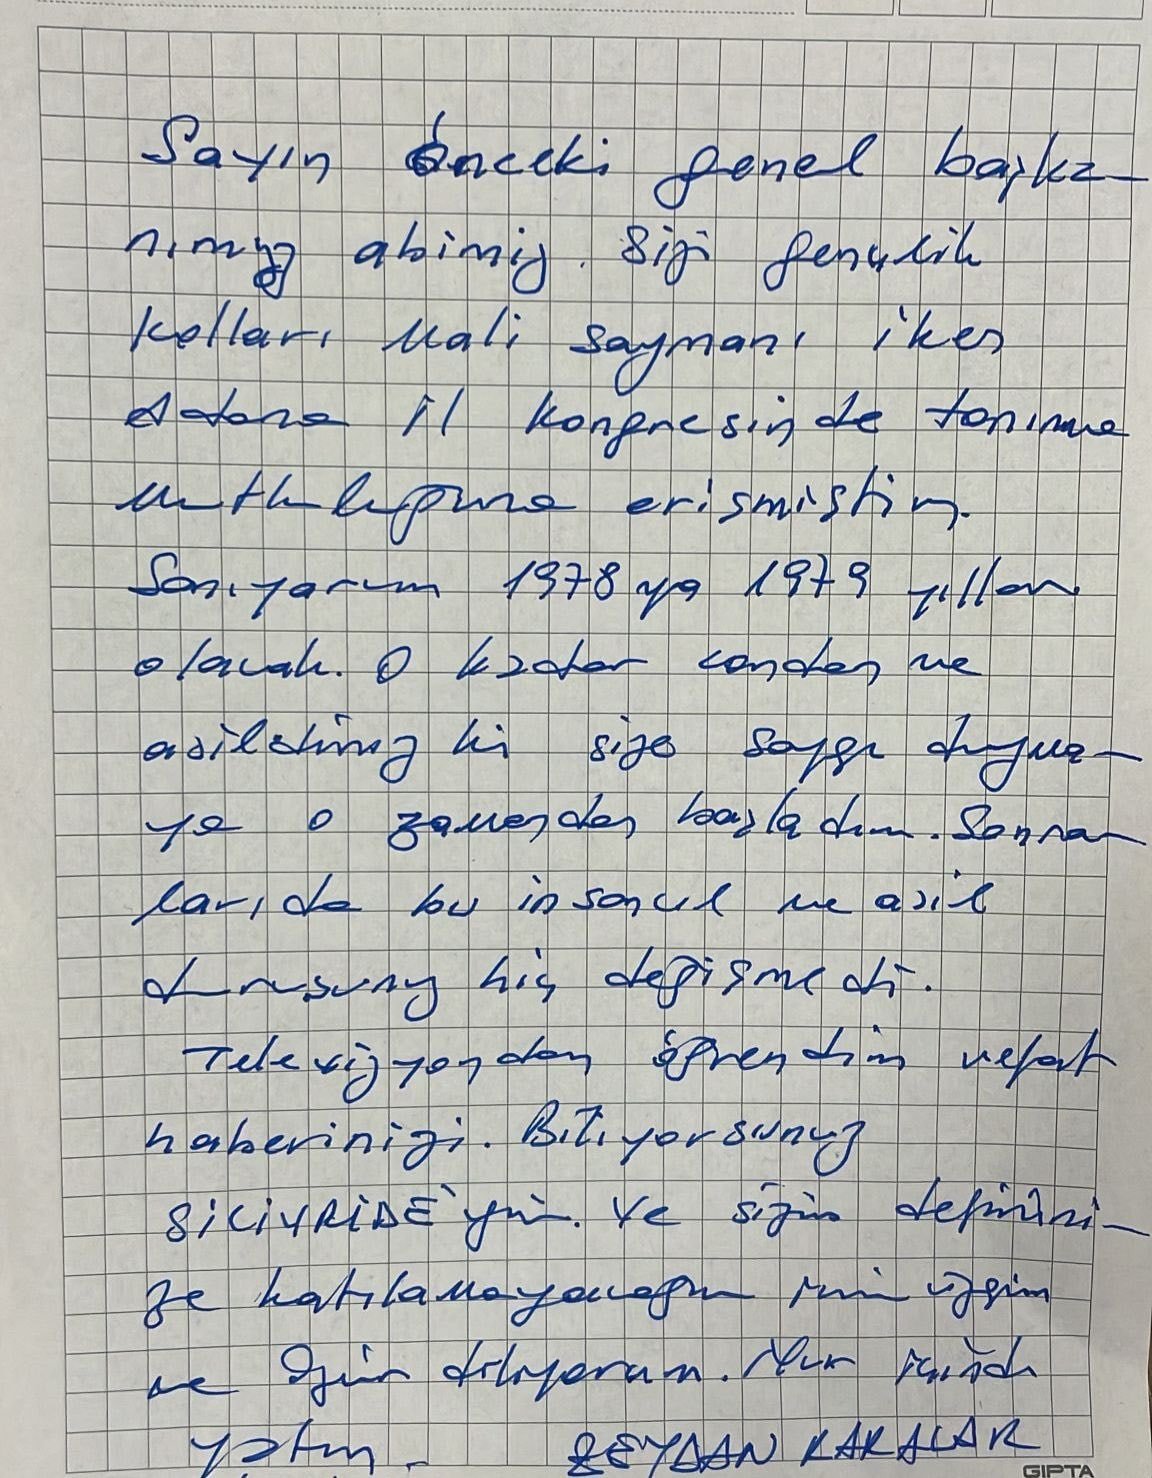 Sayın önceki genel başka-
nımız abimiz. Sizi gençlik
kolları Mali saymanı iken
Adana il kongresinde tanıma
mutluluğuna erişmiştim.
Sanıyorum 1978 ya 1979 yılları
olacak. O kadar candan ve
asildiniz ki size saygı duyma-
ya o zamandan başladım. Sonra-
larıda bu insancıl ve asil
duruşunuz hiç değişmedi.
Televizyondan öğrendim vefat
haberinizi. Biliyorsunuz
SİLİVRİDE'yim. Ve sizin defnini-
ze katılamayacağım için üzgün
ve özür diliyorum. Nur içinde
yatın. ZEYDAN KARALAR
GIPTA